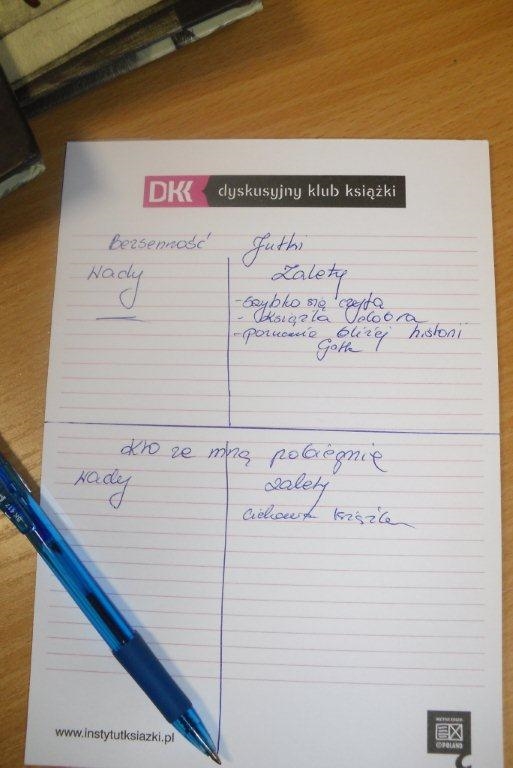 DKK dyskusyjny klub książki
Bezsenność Jutki
Wady Zalety
- szybko się czyta
- książka dobra
- poznanie bliżej historii
Getta
Kto ze mną pobiegnie
wady zalety
ciekawa książka
www.instytutksiazki.pl
©POLAND